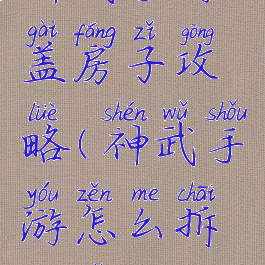 gài fáng zǐ gōng
盖房子攻
lüè shén wǔ shǒu
略(神武手
yóu zěn me chāi
游怎么拆